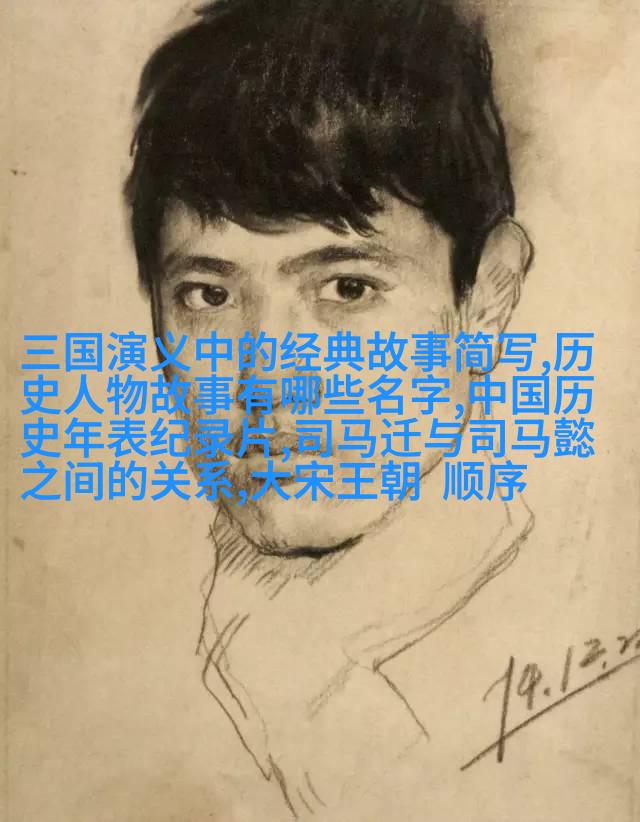 三国演义中的经典故事简写,历
史人物故事有哪些名字,中国历
史年表纪录片,司马迁与司马懿
之间的关系,大宋王朝  顺序